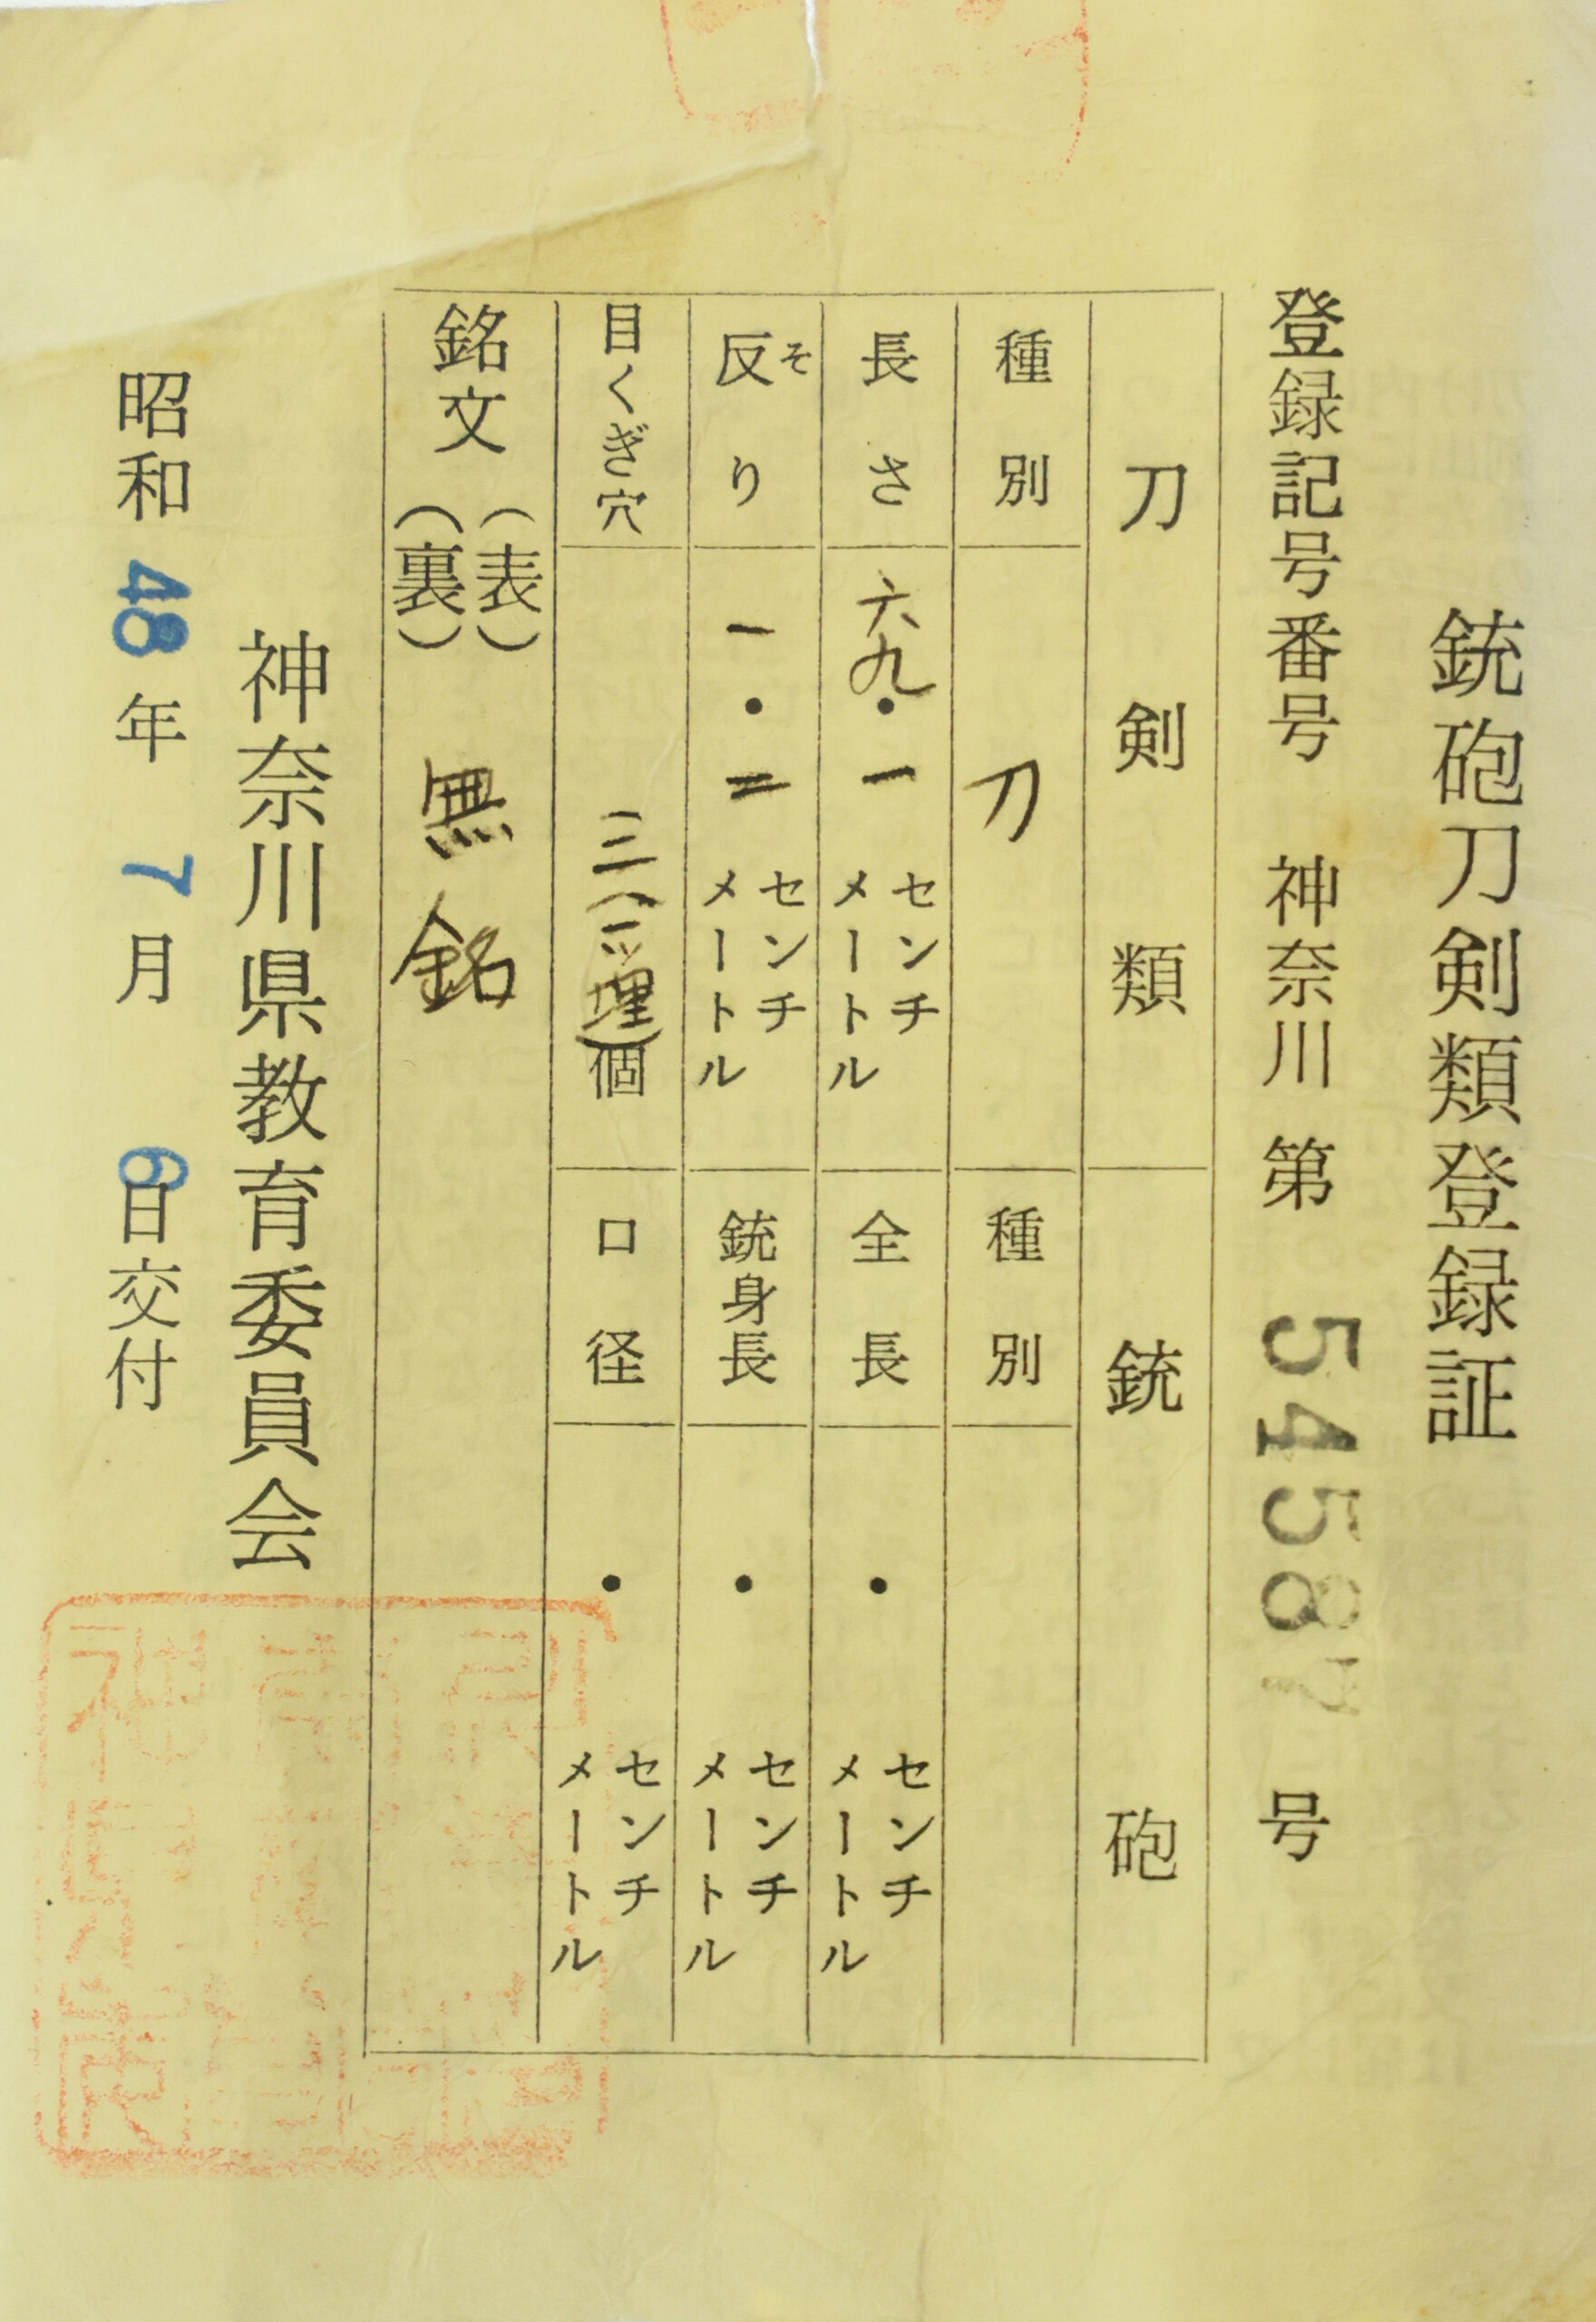 銃砲刀剣類登録証
登録記号番号 神奈川 第 54587 号
刀剣類 銃砲
種別 刀 種別
長さ 六九・一 センチメートル 全長 ・ センチメートル
反り そ 一・二 センチメートル 銃身長 ・ センチメートル
目くぎ穴 三(二ッ埋)個 口径 ・ センチメートル
銘文 (表)
(裏) 無銘
神奈川県教育委員会
昭和 48 年 7 月 6 日交付